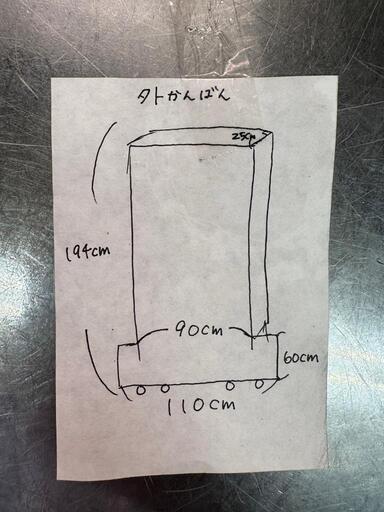 外かんばん
25cm
194cm
90cm
60cm
110cm